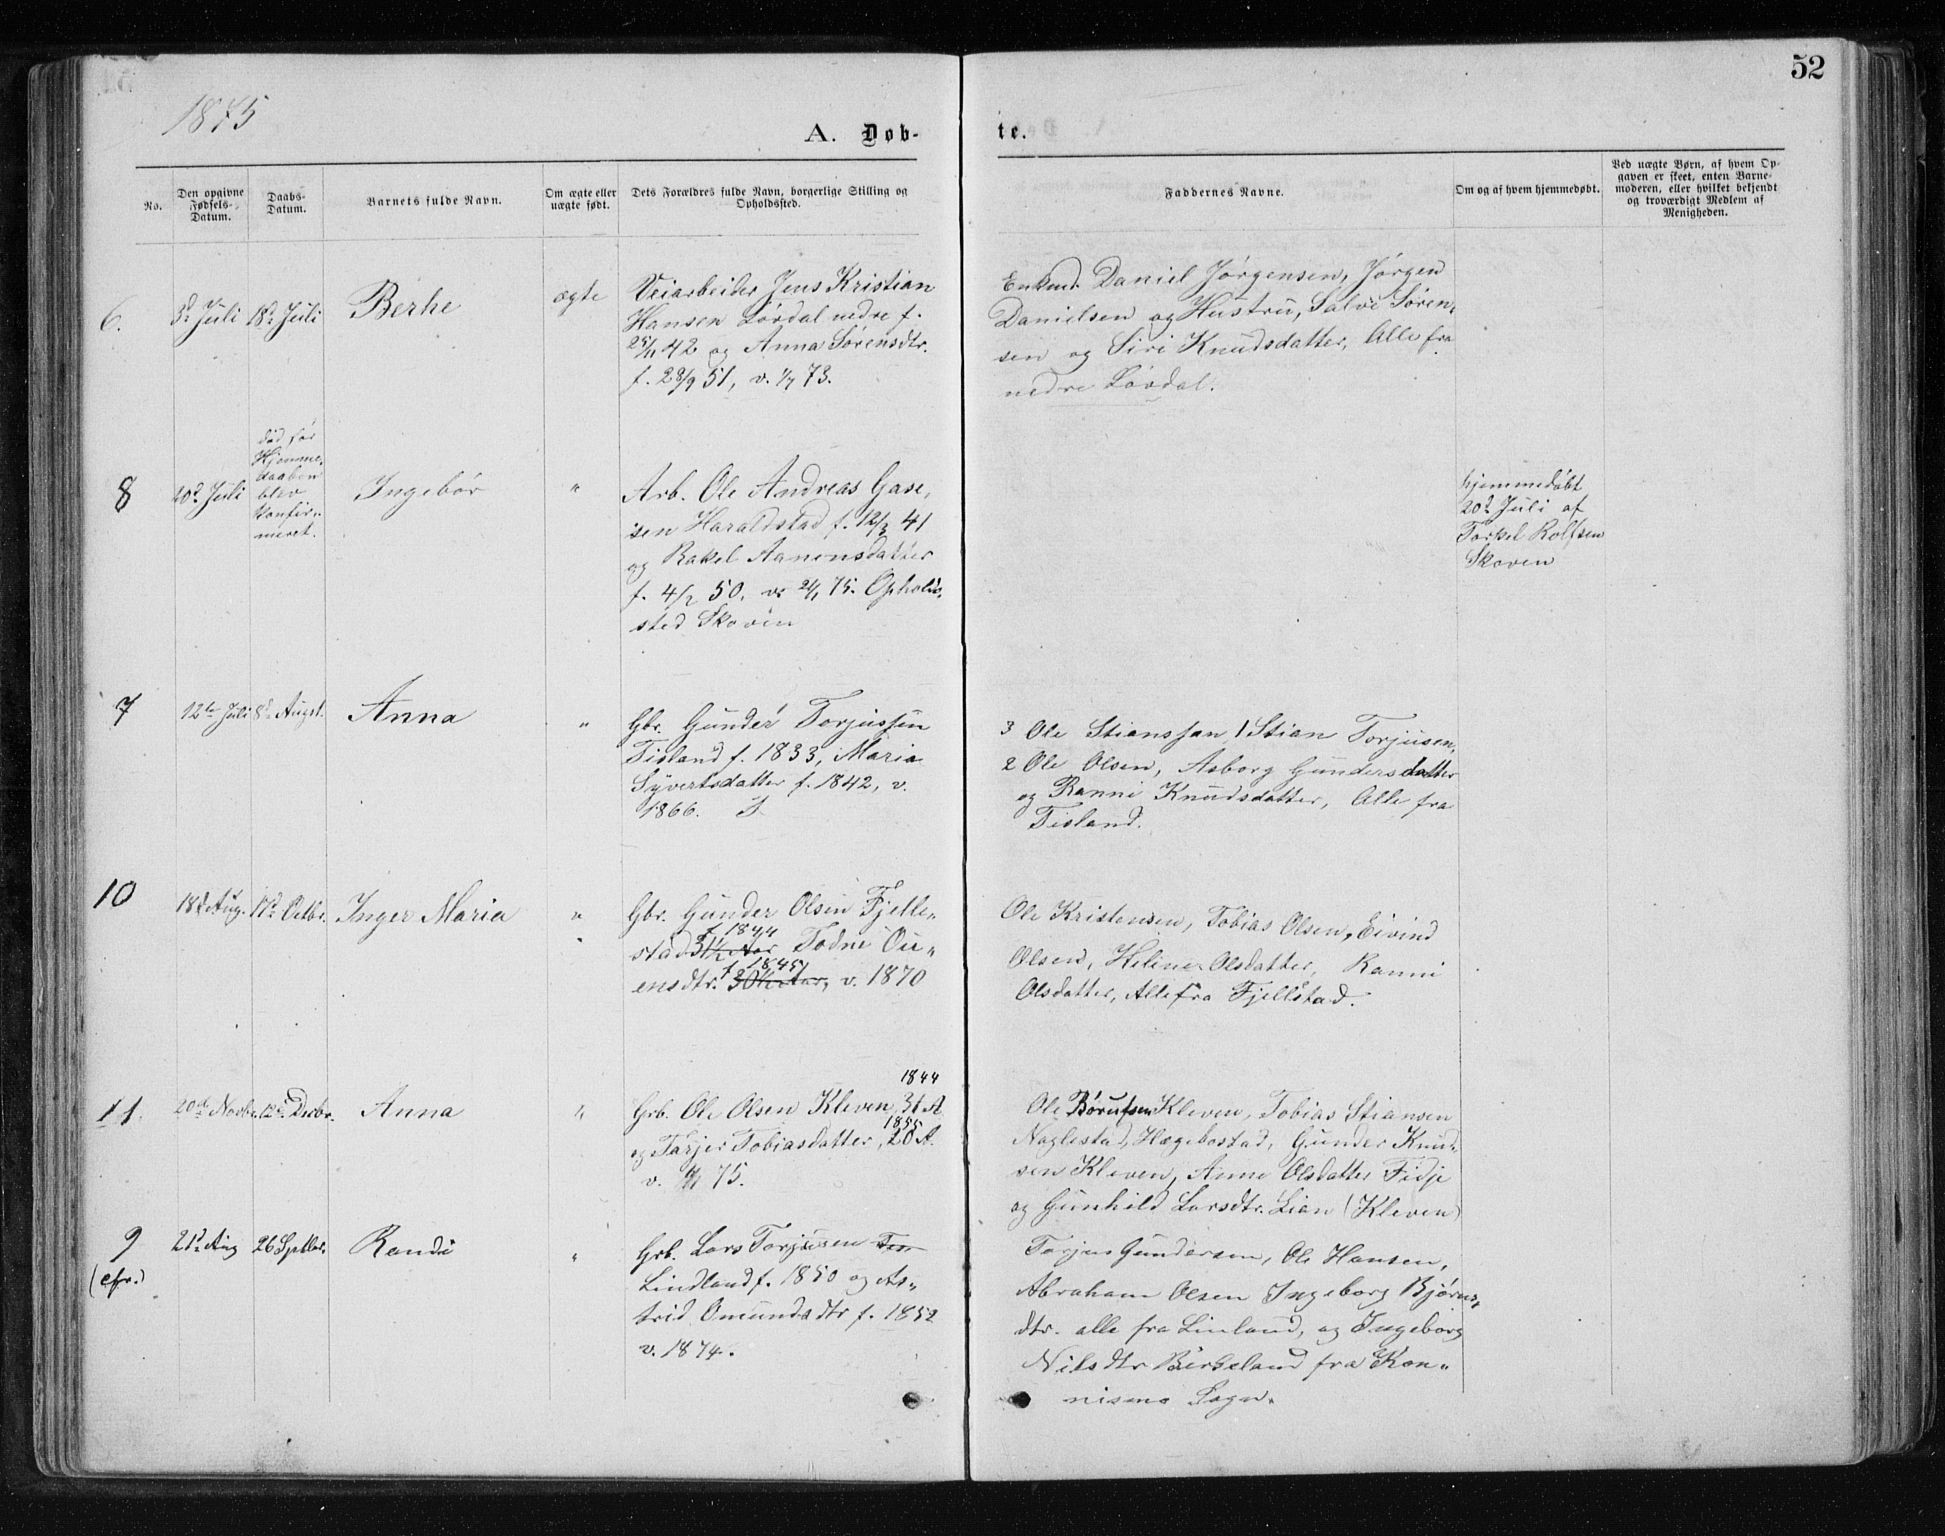 52
1875
A. Døb-
te.
No.
Den opgivne Fødsels-Datum.
Daabs-Datum.
Barnets fulde Navn.
Om ægte eller uægte født.
Dets Forældres fulde Navn, borgerlige Stilling og Opholdssted.
Faddernes Navne.
Om og af hvem hjemmedøbt.
Ved uægte Børn, af hvem Opgaven er skeet, enten Barnemoderen, eller hvilket bekjendt og troværdigt Medlem af Menigheden.
6.
3d Juli
18d Juli
Berhe
ægte
Veiarbeider Jens Kristian
Hansen Lövdal nedre f.
25/11 42 og Anna Sörensdtr.
f. 28/9 51, v. 1/7 73.
Enkmd. Daniel Jörgensen, Jörgen
Danielsen og Hustru, Salve Sören-
sen og Siri Knudsdatter, Alle fra
nedre Lövdal.
8
20d Juli
död för
Hjemme-
daaben
blev
konfir-
meret.
Ingebör
"
Arb. Ole Andreas Gase-
sen Haraldstad f. 12/3 41
og Rakel Aanensdatter
f. 4/2 50, v. 2/1 75. Opholds-
sted Skoven
hjemmedöbt
20d Juli af
Torkel Rolfsen
Skoven
7
12te Juli
8d Augst.
Anna
"
Gbr. Gunder Torjussen
Tisland f. 1833, Maria
Syvertsdatter f. 1842, v.
1866.
3 Ole Stianssan, 1 Stian Torjusen,
2 Ole Olsen, Asborg Gundersdatter
og Ranni Knudsdatter, Alle fra
Tisland.
10
18d Aug.
17d Octbr.
Inger Maria
"
Gbr. Gunder Olsen Fjelle-
f. 1844
stad 31 1/2 Aar Todne Ou-
f. 1845
ensdtr. 30 1/2 Aar, v. 1870
Ole Kristensen, Tobias Olsen, Eivind
Olsen, Helene Olsdatter, Ranni
Olsdatter, Alle fra Fjellstad.
11.
20de Novbr.
12e Decbr.
Anna
"
1844
Grb. Ole Olsen Kleven, 31 A
1855
og Tarjer Tobiasdatter, 20 A.
v. 75.
Ole Börufsen Kleven, Tobias Stiansen
Naglestad, Hægebostad, Gunder Knud-
sen Kleven, Anne Olsdatter Fidje
og Gunhild Larsdtr. Lian (Kleven)
9
(cfr.)
21d Aug
26 Sptbr.
Randi
"
Grb. Lars Torjusen
Lindland f. 1850 og As-
trid Omundsdtr f. 1852
v. 1874.
Torjus Gundersen, Ole Hansen,
Abraham Olsen Ingeborg Bjørns-
dtr. alle fra Linland, og Ingeborg
Nilsdtr Birkeland fra Kon-
nismo Sogn.